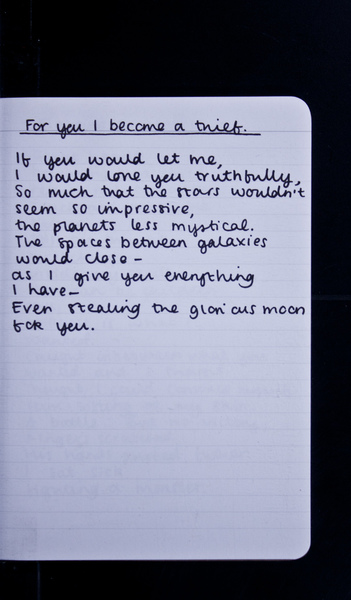 For you I become a thief.
If you would let me,
I would love you truthfully,
So much that the stars wouldn't
seem so impressive,
the planets less mystical.
The spaces between galaxies
would close -
as I give you everything
I have -
Even stealing the glorious moon
for you.